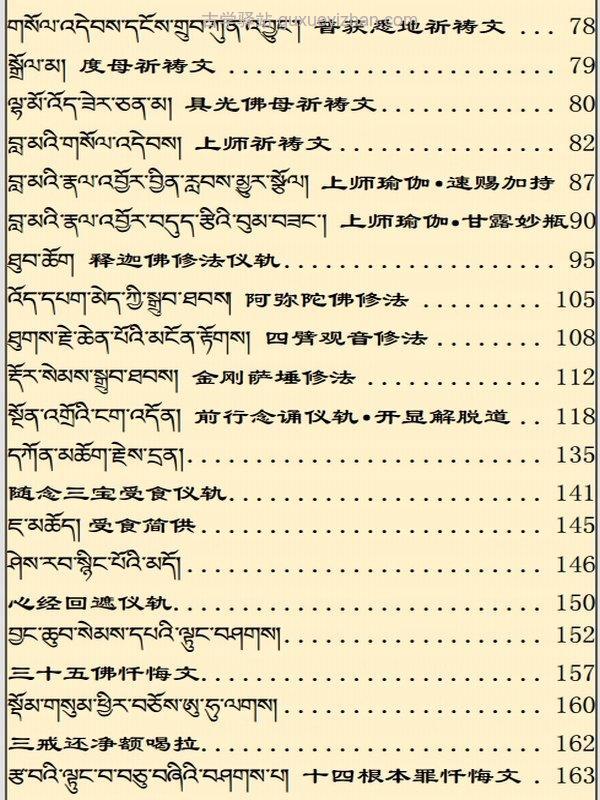 古学驿站 guxueyizhan.com
གསོལ་འདེབས་དངོས་གྲུབ་ཀུན་འབྱུང། 普获悉地祈祷文 ... 78
སྒྲོལ་མ། 度母祈祷文 .................. 79
ལྷ་མོ་འོད་ཟེར་ཅན་མ། 具光佛母祈祷文............ 80
བླ་མའི་གསོལ་འདེབས། 上师祈祷文 ............ 82
བླ་མའི་རྣལ་འབྱོར་བྱིན་རླབས་མྱུར་སྩོལ། 上师瑜伽•速赐加持 87
བླ་མའི་རྣལ་འབྱོར་བདུད་རྩིའི་བུམ་བཟང་། 上师瑜伽•甘露妙瓶90
ཐུབ་ཆོག 释迦佛修法仪轨.................... 95
འོད་དཔག་མེད་ཀྱི་སྒྲུབ་ཐབས། 阿弥陀佛修法 ......... 105
ཐུགས་རྗེ་ཆེན་པོའི་མངོན་རྟོགས། 四臂观音修法 ........ 108
རྡོར་སེམས་སྒྲུབ་ཐབས། 金刚萨埵修法 ............. 112
སྔོན་འགྲོའི་ངག་འདོན། 前行念诵仪轨•开显解脱道 .. 118
དཀོན་མཆོག་རྗེས་དྲན།.......................... 135
随念三宝受食仪轨....................... 141
ཇ་མཆོད། 受食简供......................... 145
ཤེས་རབ་སྙིང་པོའི་མདོ། .......................... 146
心经回遮仪轨........................... 150
བྱང་ཆུབ་སེམས་དཔའི་ལྟུང་བཤགས།................... 152
三十五佛忏悔文......................... 157
སྡོམ་གསུམ་ཕྱིར་བཅོས་ཨུ་ཧུ་ལགས། ................... 160
三戒还净额喝拉......................... 162
རྩ་བའི་ལྟུང་བ་བཅུ་བཞིའི་བཤགས་པ། 十四根本罪忏悔文 . 163